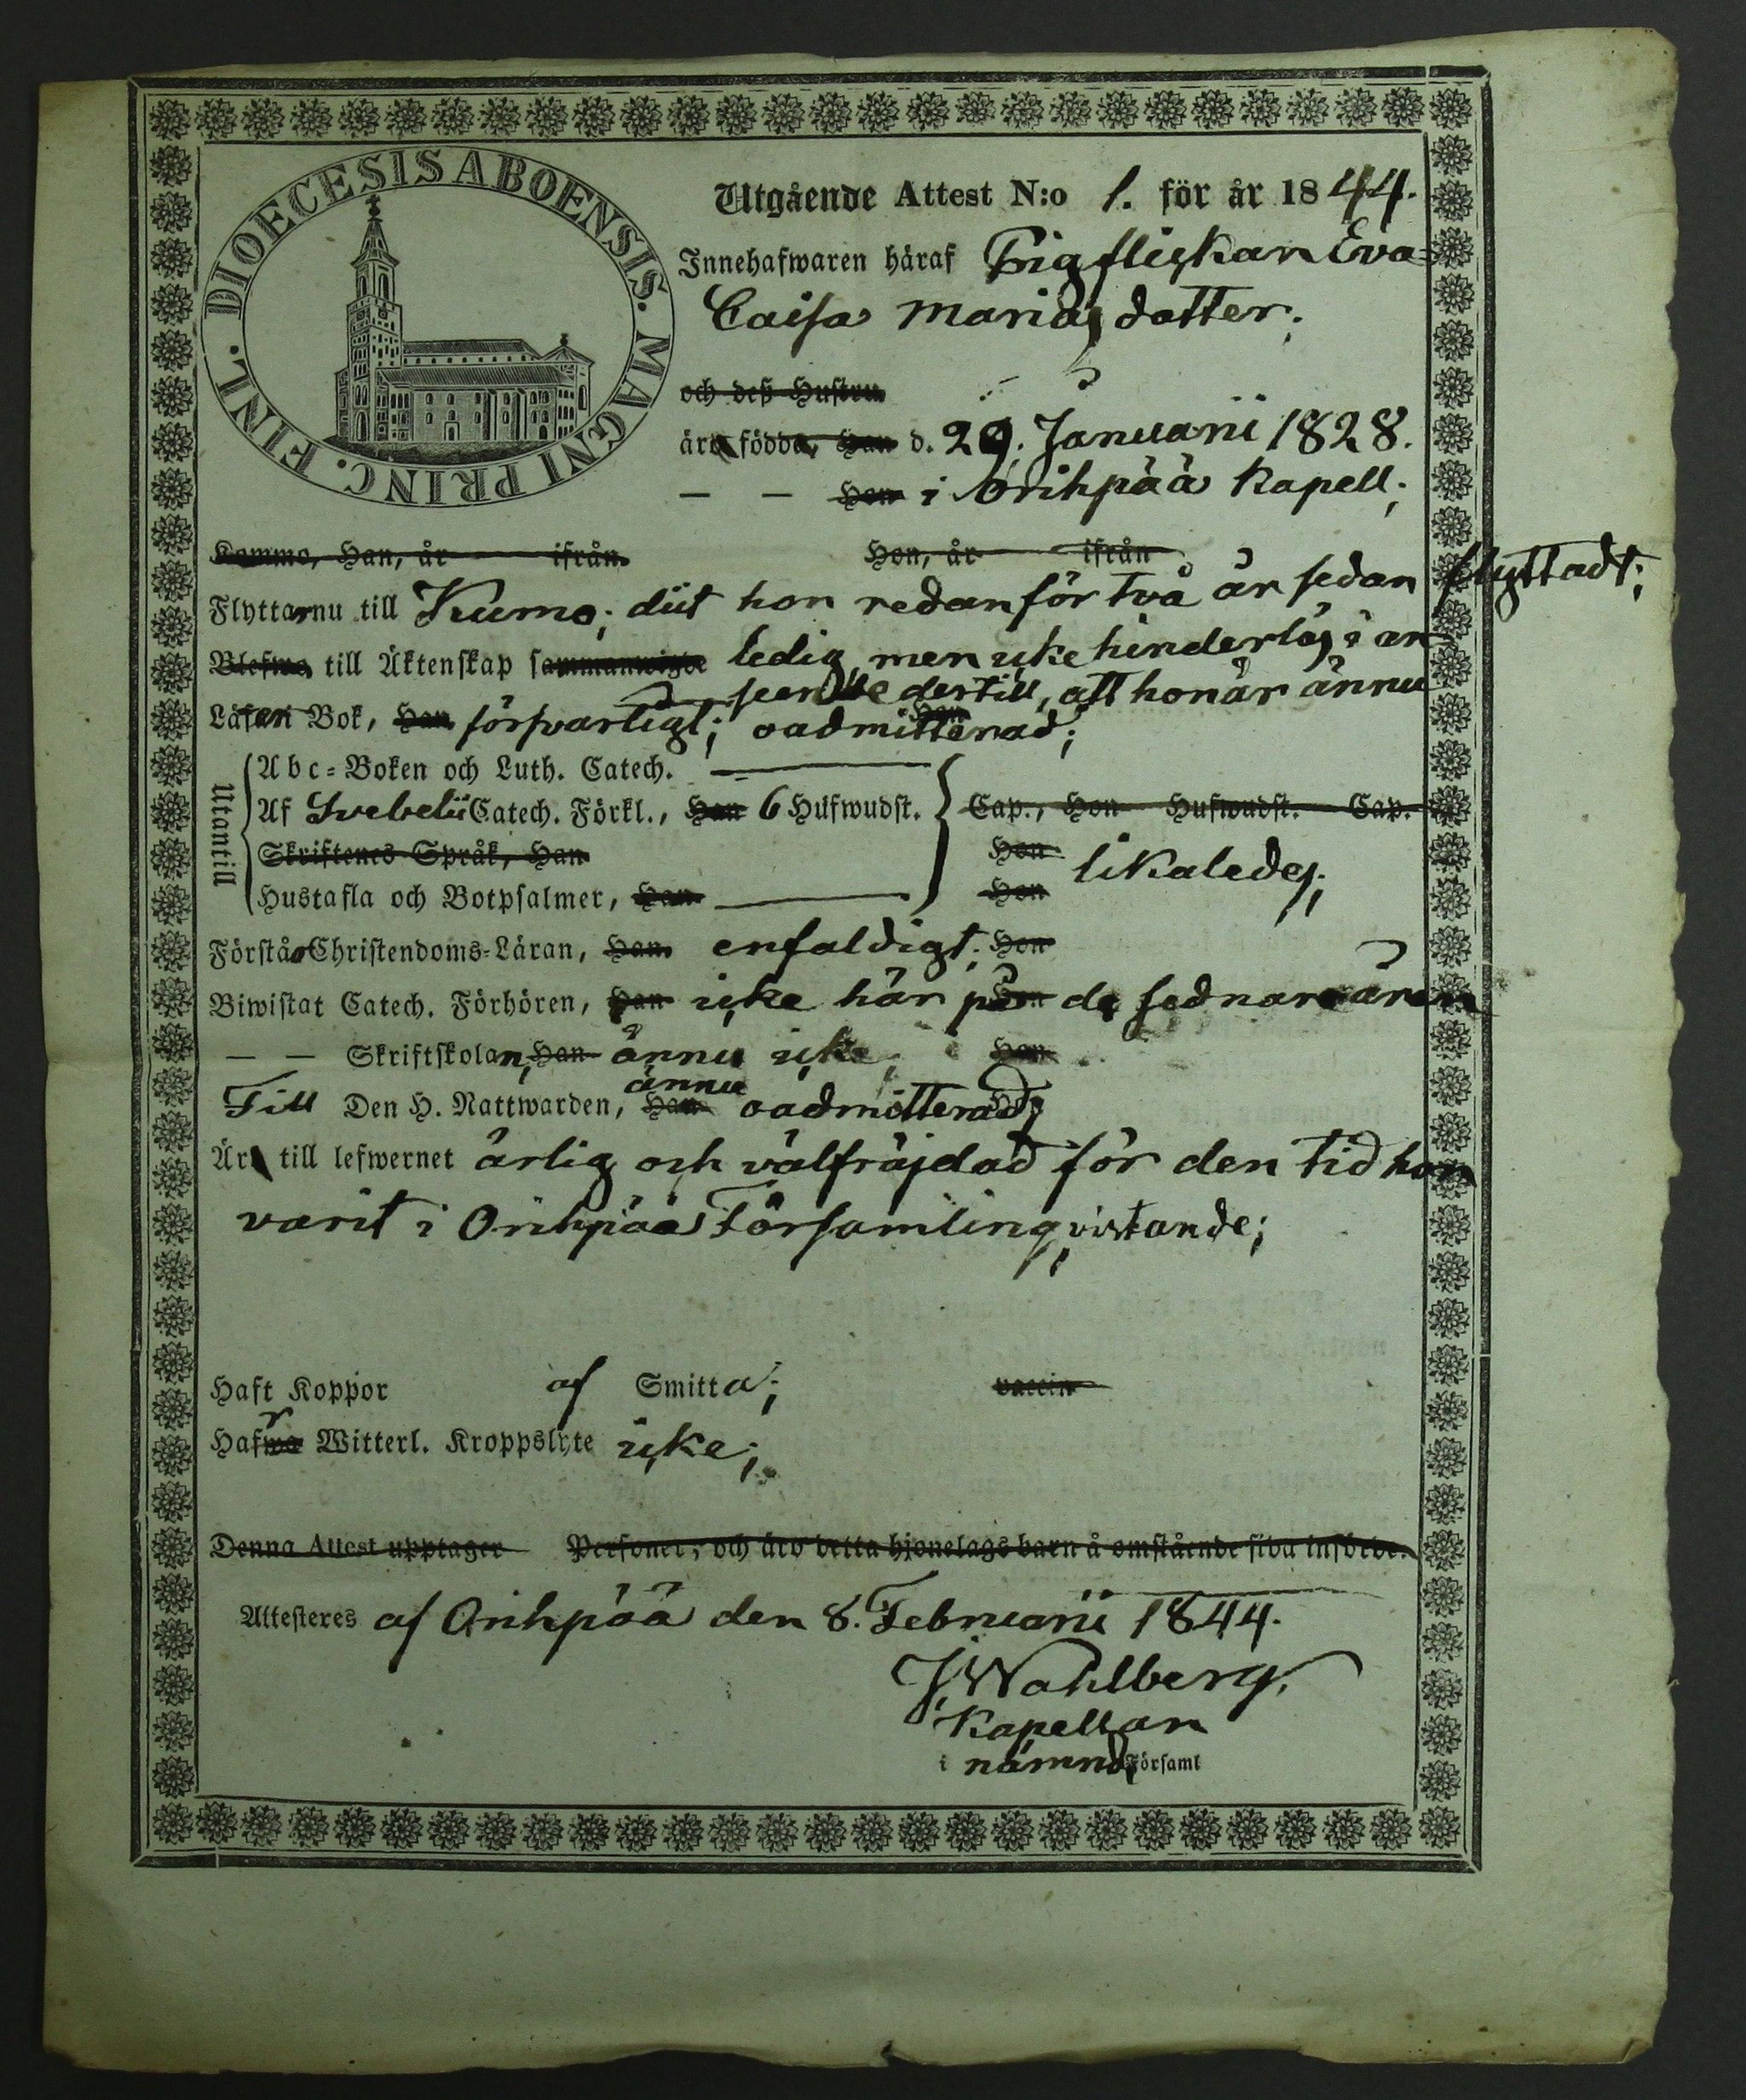 DIOECESIS ABOENSIS. MAGNI PRINC. FINL.
Utgående Attest N:o 1. för år 1844.
Innehafwaren häraf Pigflickan Eva
Caisa Mariæ dotter;
och deß Hustru
äro födda, Han d. 29. Januarii 1828.
— — Hon i Orihpää Kapell;
Komma, Han, år ifrån Hon, år ifrån
Flyttar nu till Kumo; diit hon redan för två år sedan flyttadt;
Blefwo till Äktenskap sammanwigde ledig, men icke hinderlös i an
seende dertill, att hon är ännu
Läser i Bok, Han försvarligt; Hon oadmitterad;
Utantill
Abc-Boken och Luth. Catech. —
Af Svebelii Catech. Förkl., Han 6 Hufwudst. Cap., Hon Hufwudst. Cap.
Skriftenes Språk, Han Hon likaledes;
Hustafla och Botpsalmer, Han — Hon
Förstår Christendoms-Läran, Han enfaldigt; Hon
Biwistat Catech. Förhören, Han icke här på Hon de sednare åren
— — Skriftskolan, Han ännu icke; Hon
ännu
Till Den H. Nattwarden, Han oadmitterad;
Är till lefwernet ärlig och välfräjdad för den tid hon
varit i Orihpää Församling vistande;
Haft Koppor af Smitta; vaccin
Hafwa Witterl. Kroppslyte icke;
Denna Attest upptager Personer, och äro detta hjonelags barn å omstående sida införde.
Attesteres af Orihpää den 8. Februarii 1844.
J. Wahlberg.
Kapellan
i nämnd Församl